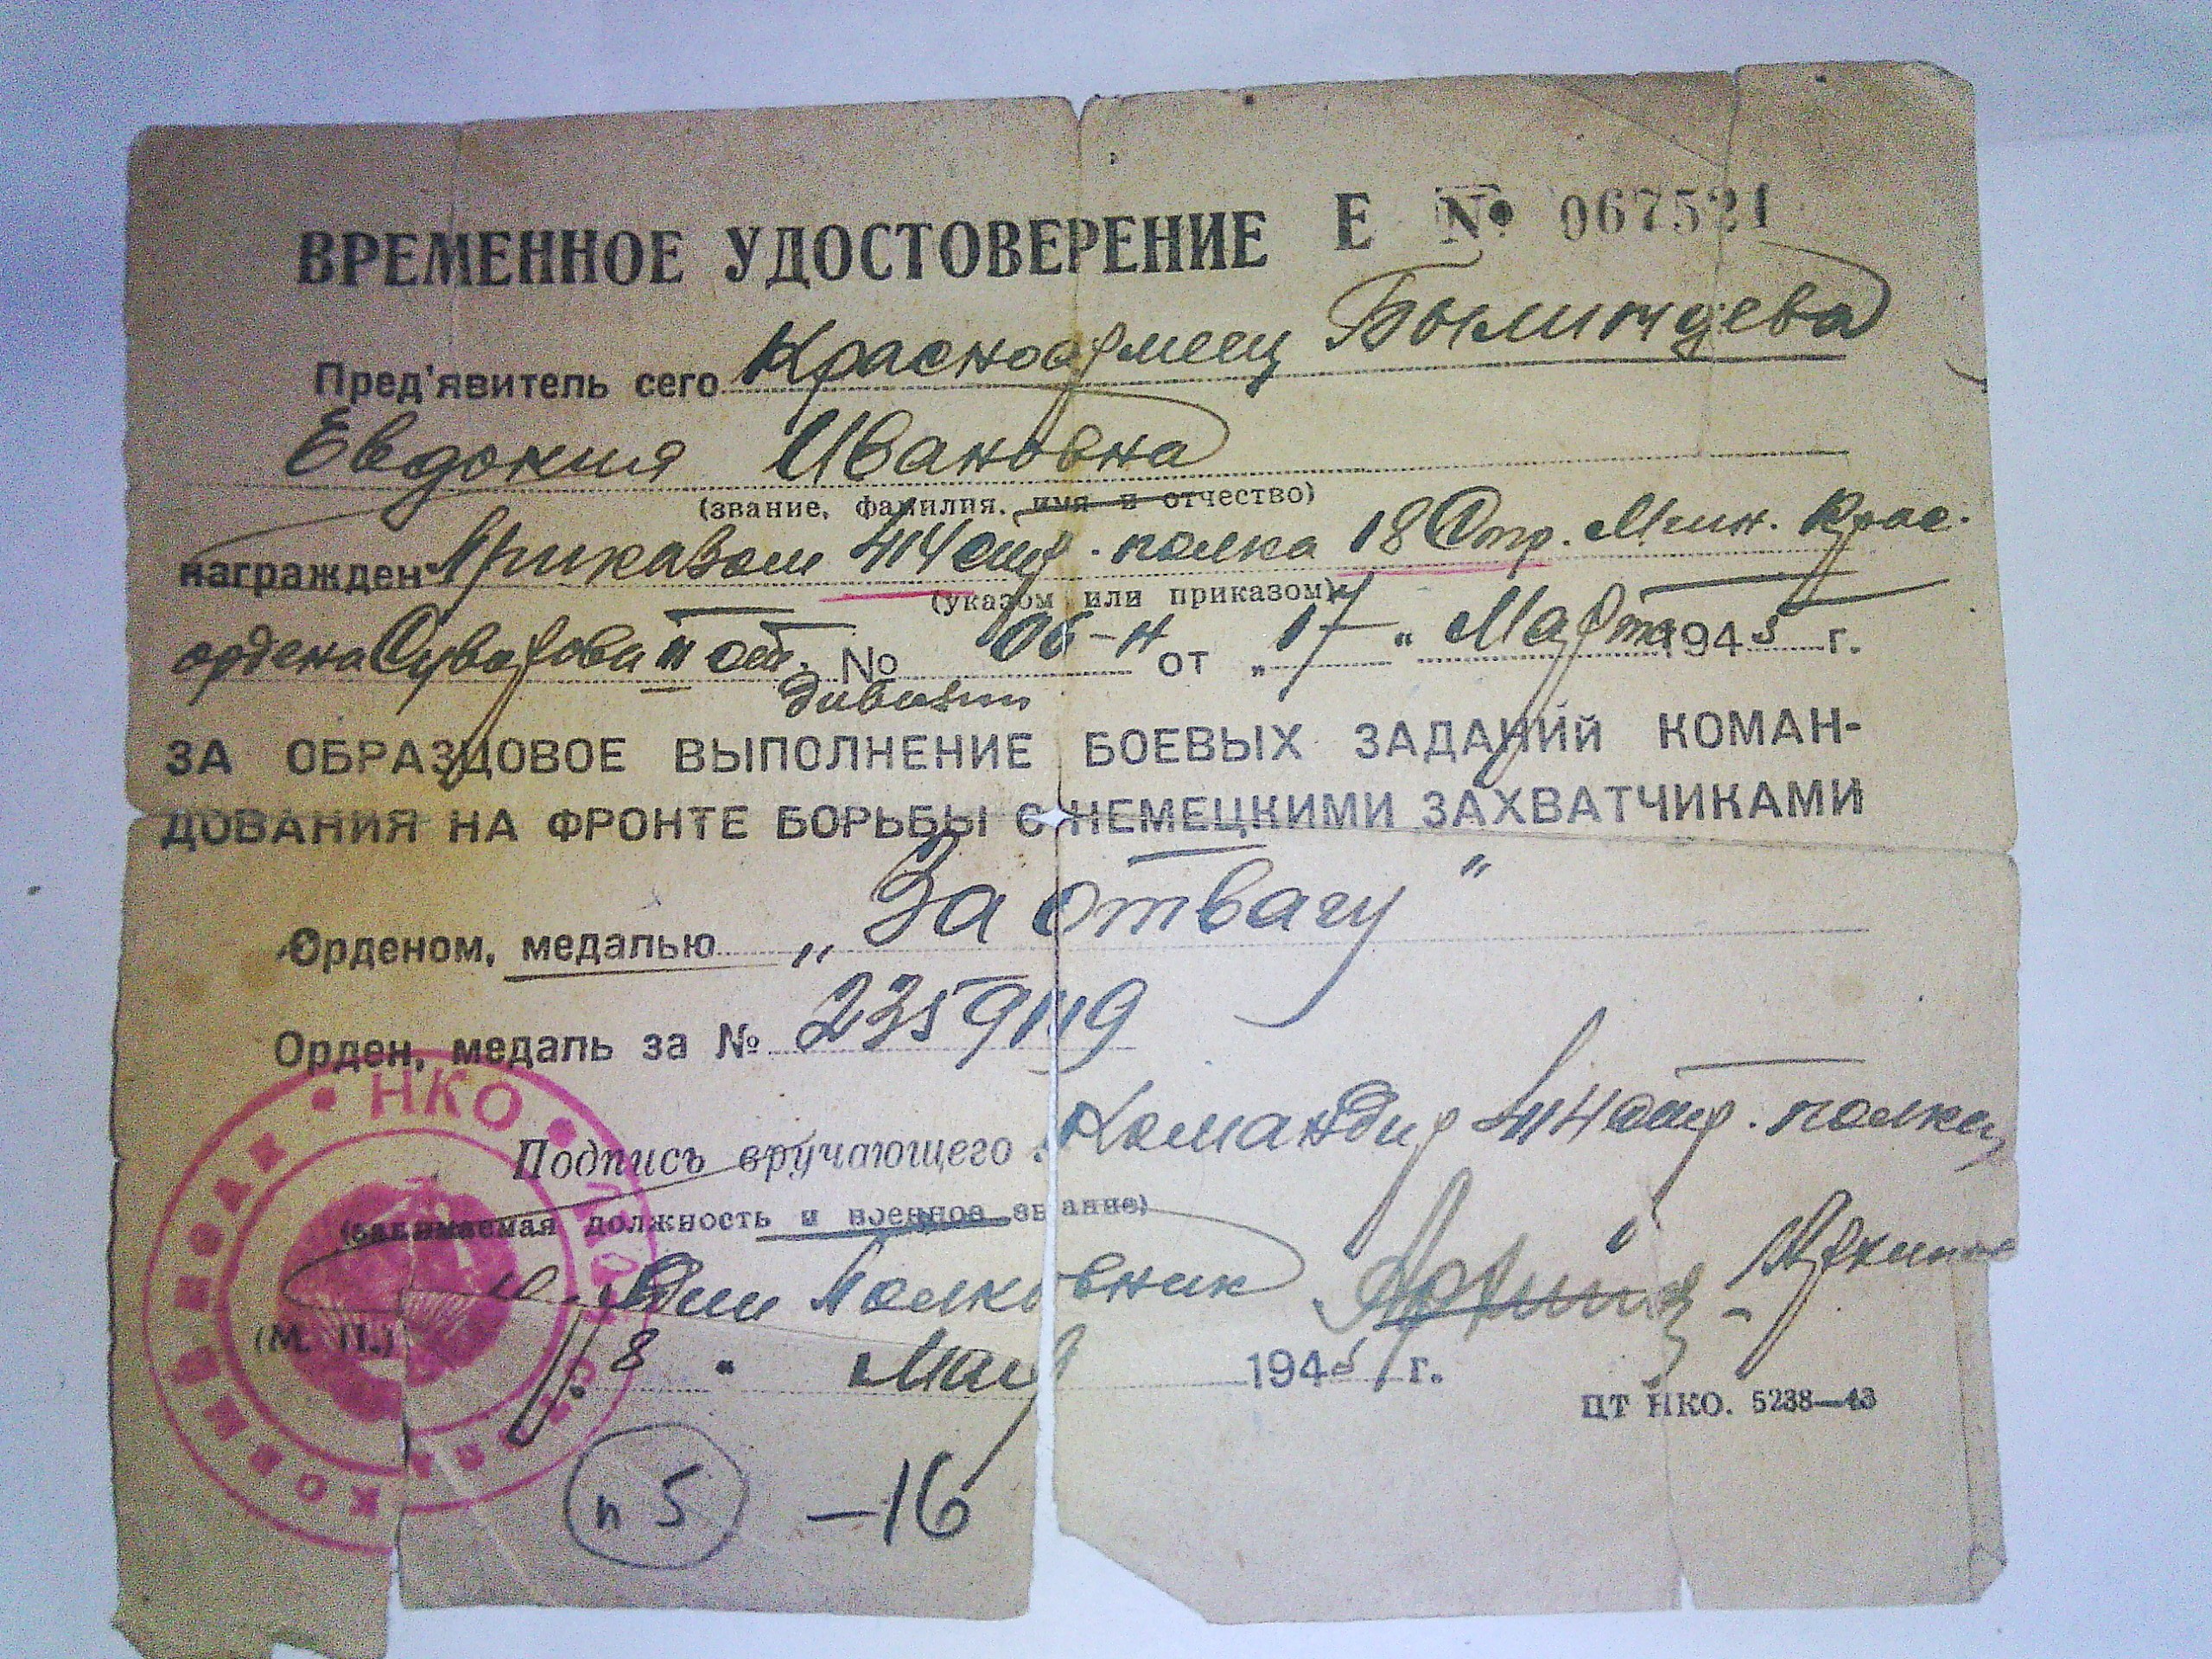 ВРЕМЕННОЕ УДОСТОВЕРЕНИЕ Е № 067521
Пред'явитель сего Красноармеец
Евдокия Ивановна
(звание, фамилия, имя и отчество)
награжден Приказом 414 стр. полка 18 Стр. Мгин. Крас.
(указом или приказом)
ордена Суворова II ст. № 06-н от „17" Марта 1945 г.
дивизии
ЗА ОБРАЗЦОВОЕ ВЫПОЛНЕНИЕ БОЕВЫХ ЗАДАНИЙ КОМАН-
ДОВАНИЯ НА ФРОНТЕ БОРЬБЫ С НЕМЕЦКИМИ ЗАХВАТЧИКАМИ
Орденом, медалью „За отвагу"
Орден, медаль за № 2359119
НКО
Подпись вручающего Командир 414 стр. полка
(занимаемая должность и военное звание)
Полковник
(М. П.) 8 " Мая 1945 г.
ЦТ НКО. 5238—43
п 5 —16